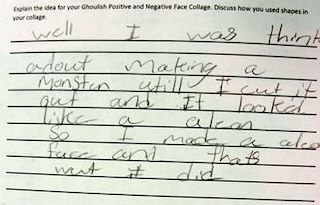 Explain the idea for your Ghoulish Positive and Negative Face Collage. Discuss how you used shapes in
your collage.
well I was think
about making a
Monster utill I cut it
out and It looked
like a alean
So I made a alea
face and thats
what I did